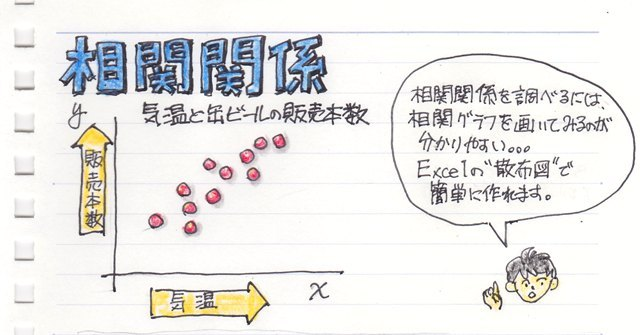 相関関係
y
気温と缶ビールの販売本数
販売本数
気温
x
相関関係を調べるには、
相関グラフを画いてみるのが
分かりやすい。。。
Excelの"散布図"で
簡単に作れます。